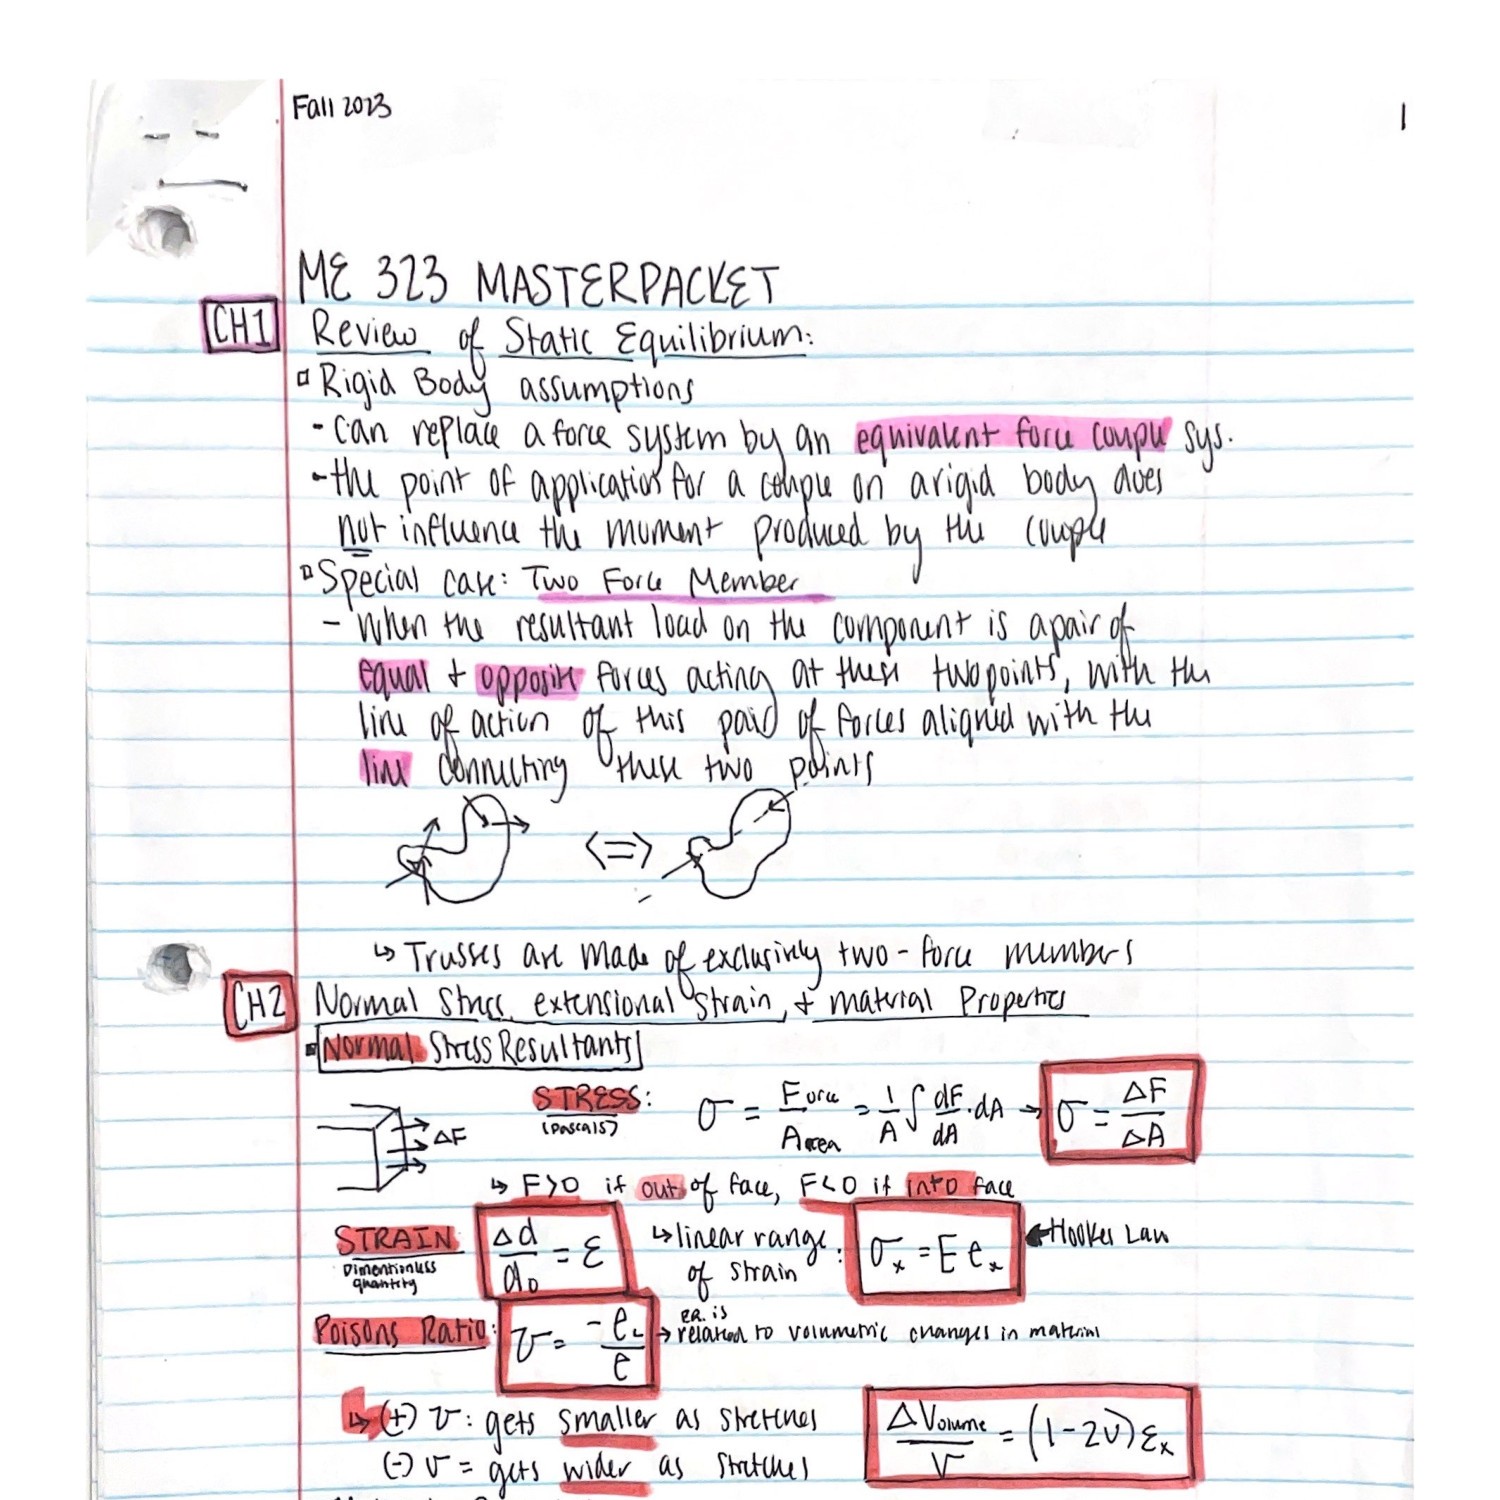 Fall 2023
1
ME 323 MASTERPACKET
CH1 Review of Static Equilibrium:
Rigid Body assumptions
- Can replace a force system by an equivalent force couple sys.
- the point of application for a couple on a rigid body does
not influence the moment produced by the couple
Special Case: Two Force Member
- When the resultant load on the component is a pair of
equal + opposite forces acting at these two points, with the
line of action of this paid of forces aligned with the
line connecting these two points
<=>
↳ Trusses are made of exclusively two-force members
CH2 Normal Stress, extensional strain, + material Properties
Normal Stress Resultants
STRESS: σ = Force/Area = 1/A ∫ dF/dA · dA → σ = ΔF/ΔA
(pascals)
ΔF
↳ F>0 if out of face, F<0 if into face
STRAIN: Δd/d₀ = ε ↳ linear range of strain: σₓ = E eₓ ← Hookes Law
Dimentionless
quantity
Poisons Ratio: ν = -e_L/e → related to volumetric changes in material
↳ (+) ν: gets smaller as stretches
(-) ν = gets wider as stretches
ΔVolume/V = (1-2ν)εₓ